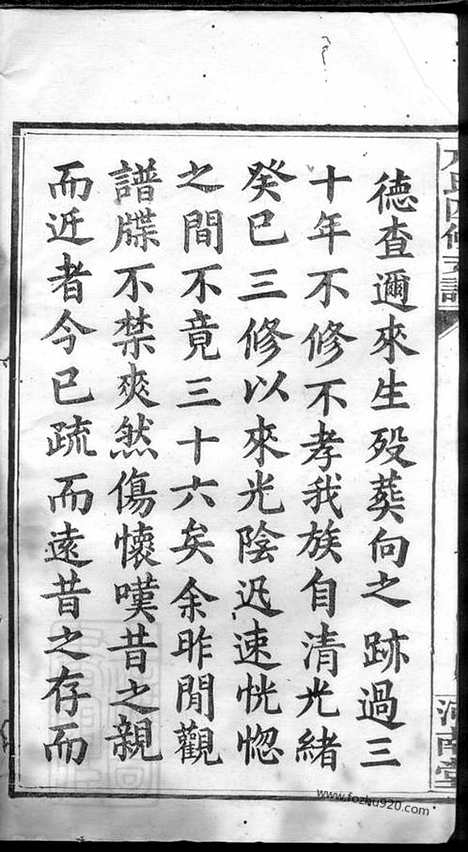 德查邇來生殁葬向之跡過三
十年不修不孝我族自清光緒
癸巳三修以來光陰迅速恍惚
之間不竟三十六矣余昨閒觀
譜牒不禁爽然傷懷嘆昔之親
而近者今已疏而遠昔之存而
www.fozhu920.com